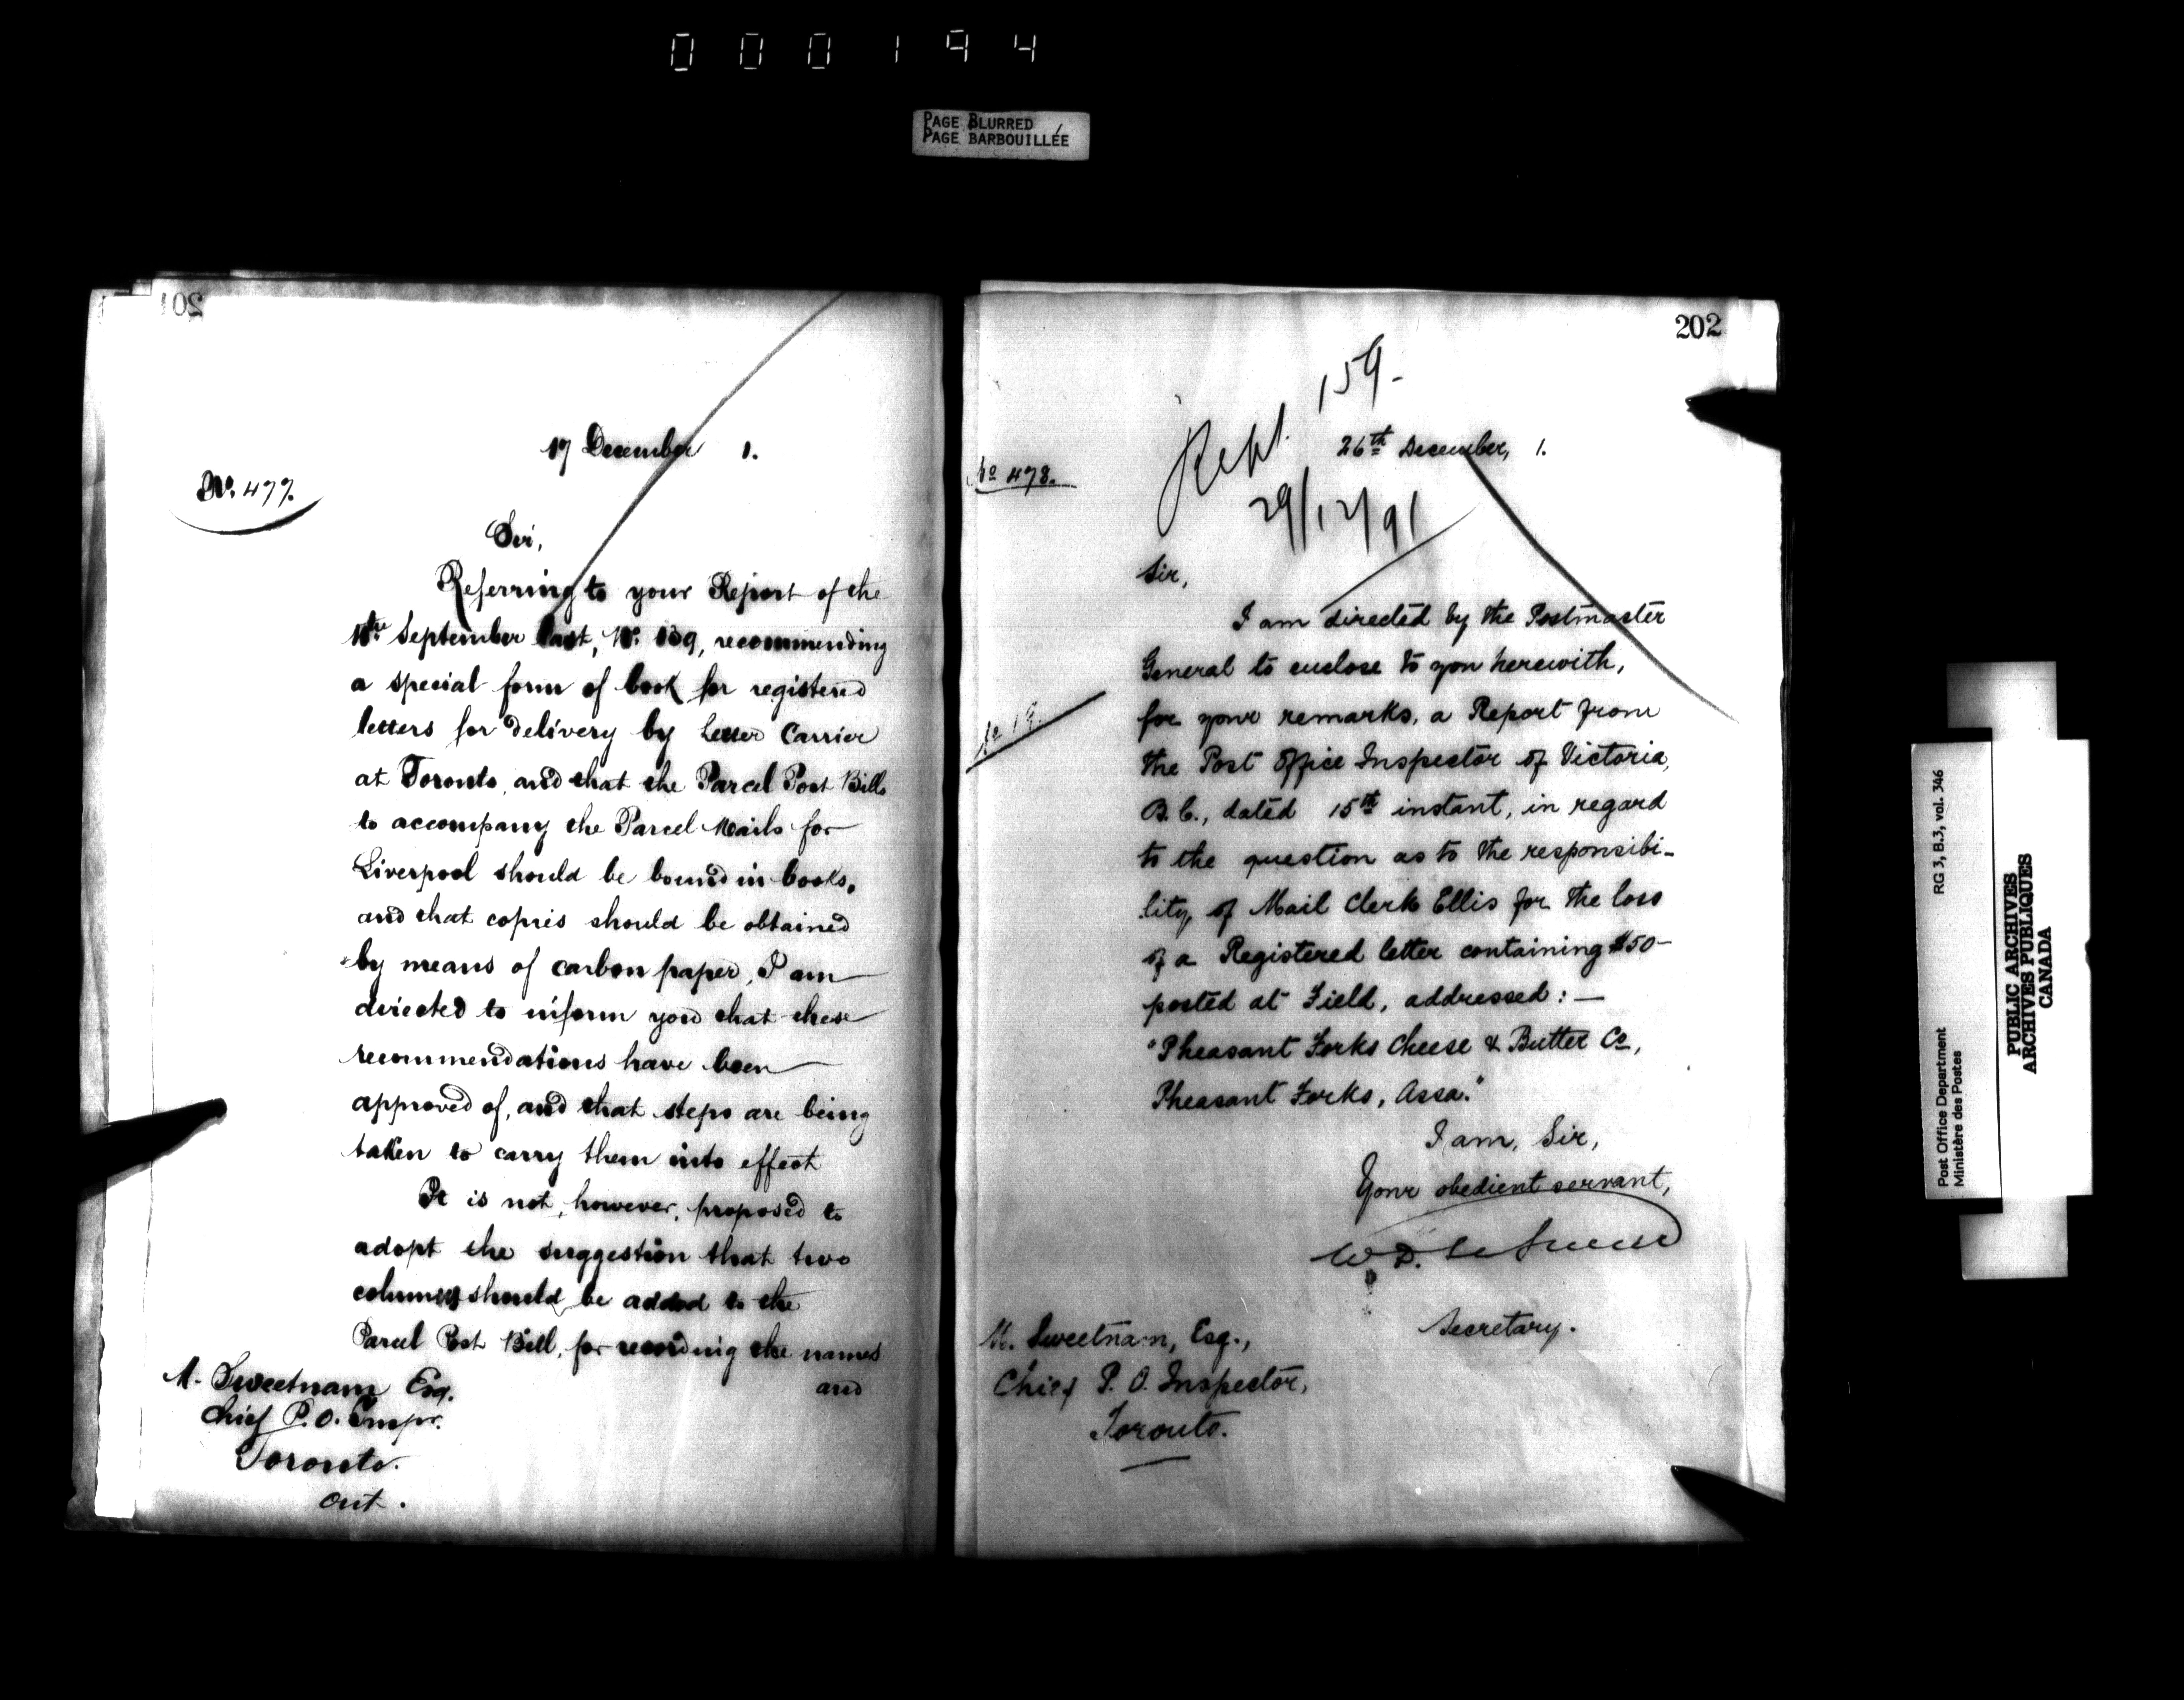 000194
PAGE BLURRED
PAGE BARBOUILLÉE
201
17 December 1.
No. 477.
Sir,
Referring to your Report of the
September last, No. 139, recommending
a special form of book for registered
letters for delivery by Letter Carrier
at Toronto, and that the Parcel Post Bills
to accompany the Parcel Mails for
Liverpool should be bound in books,
and that copies should be obtained
by means of carbon paper, I am
directed to inform you that these
recommendations have been
approved of, and that steps are being
taken to carry them into effect
It is not, however, proposed to
adopt the suggestion that two
columns should be added to the
Parcel Post Bill, for recording the names
and
M. Sweetnam Esq.
Chief P.O. Inspr.
Toronto.
Ont.
202
Rept. 159-
29/12/91
26th December, 1.
No 478.
Sir,
I am directed by the Postmaster
General to enclose to you herewith,
for your remarks, a Report from
the Post Office Inspector of Victoria,
B.C., dated 15th instant, in regard
to the question as to the responsibi-
lity of Mail Clerk Ellis for the loss
of a Registered letter containing $50-
posted at Field, addressed:—
"Pheasant Forks Cheese & Butter Co,
Pheasant Forks, Assa."
I am, Sir,
Your obedient servant,
W. D. LeSueur
Secretary.
M. Sweetnam, Esq.,
Chief P. O. Inspector,
Toronto.
Post Office Department
Ministère des Postes
RG 3, B.3, vol. 346
PUBLIC ARCHIVES
ARCHIVES PUBLIQUES
CANADA